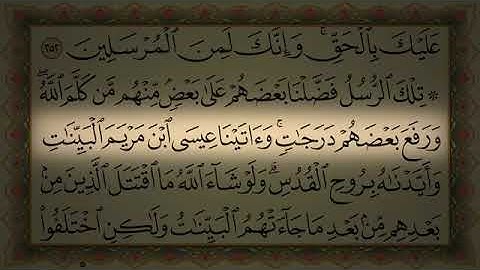 عَلَيۡكَ بِٱلۡحَقِّۚ وَإِنَّكَ لَمِنَ ٱلۡمُرۡسَلِينَ ٢٥٢
۞ تِلۡكَ ٱلرُّسُلُ فَضَّلۡنَا بَعۡضَهُمۡ عَلَىٰ بَعۡضٖۘ مِّنۡهُم مَّن كَلَّمَ ٱللَّهُۖ
وَرَفَعَ بَعۡضَهُمۡ دَرَجَٰتٖۚ وَءَاتَيۡنَا عِيسَى ٱبۡنَ مَرۡيَمَ ٱلۡبَيِّنَٰتِ
وَأَيَّدۡنَٰهُ بِرُوحِ ٱلۡقُدُسِۗ وَلَوۡ شَآءَ ٱللَّهُ مَا ٱقۡتَتَلَ ٱلَّذِينَ مِنۢ
بَعۡدِهِم مِّنۢ بَعۡدِ مَا جَآءَتۡهُمُ ٱلۡبَيِّنَٰتُ وَلَٰكِنِ ٱخۡتَلَفُواْ